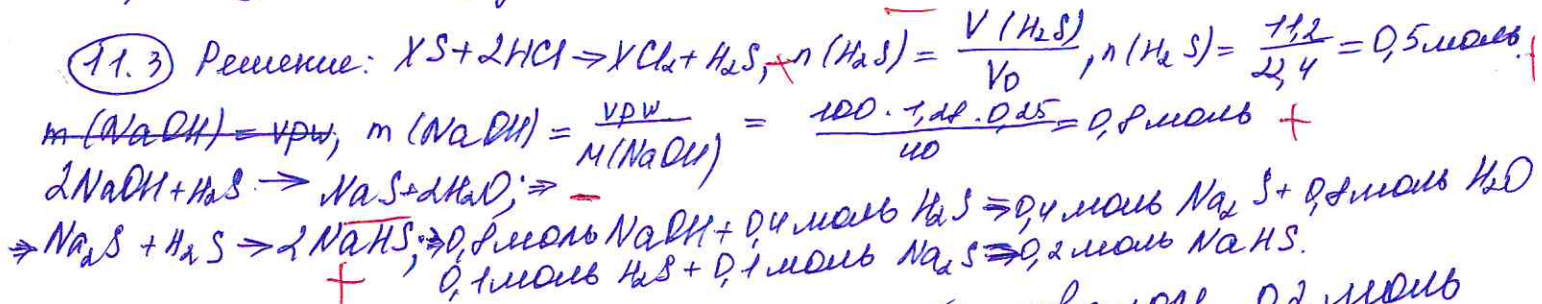 11.3 Решение: XS+2HCl⇒XCl₂+H₂S, n(H₂S)= V(H₂S)/V₀, n(H₂S)= 11,2/22,4 =0,5моль.
m(NaOH)=vρw, m(NaOH)= vρw/M(NaOH) = 100·1,28·0,25/40 =0,8моль
2NaOH+H₂S → NaS+2H₂O; ⇒
⇒Na₂S+H₂S→2NaHS; ⇒0,8моль NaOH+0,4моль H₂S⇒0,4моль Na₂S+0,8моль H₂O
0,1моль H₂S+0,1моль Na₂S⇒0,2моль NaHS.
0,2 моль